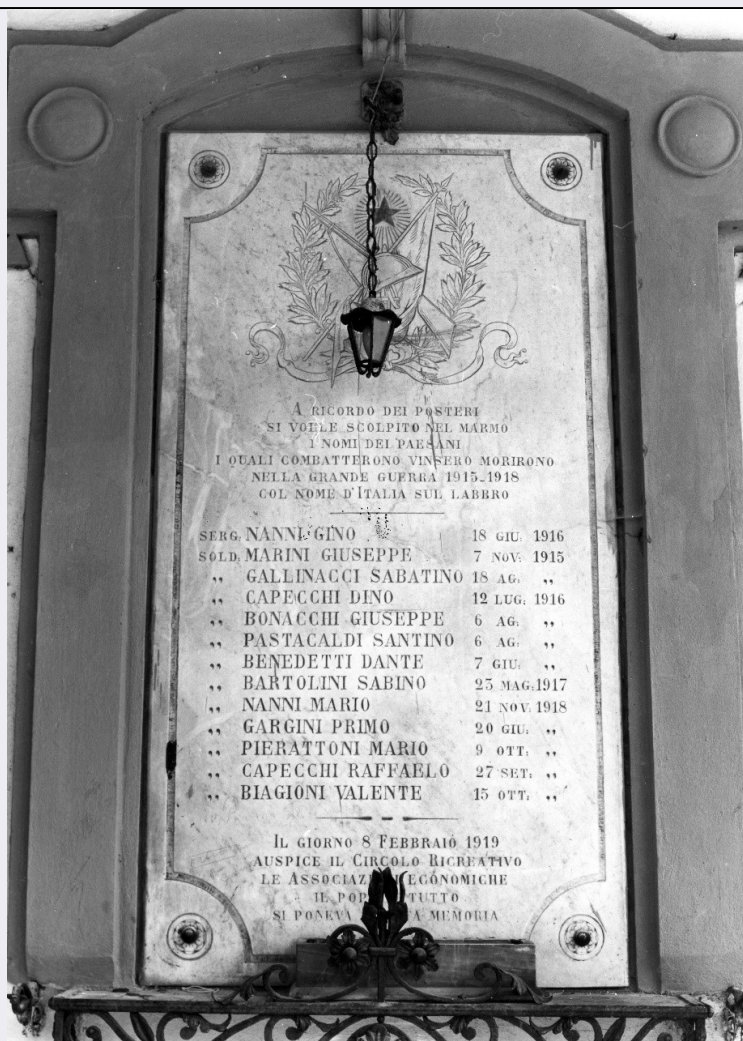 A RICORDO DEI POSTERI
SI VOLLE SCOLPITO NEL MARMO
I NOMI DEI PAESANI
I QUALI COMBATTERONO VINSERO MORIRONO
NELLA GRANDE GUERRA 1915-1918
COL NOME D'ITALIA SUL LABBRO
SERG: NANNI GINO 18 GIU: 1916
SOLD: MARINI GIUSEPPE 7 NOV: 1915
„ GALLINACCI SABATINO 18 AG: „
„ CAPECCHI DINO 12 LUG: 1916
„ BONACCHI GIUSEPPE 6 AG: „
„ PASTACALDI SANTINO 6 AG: „
„ BENEDETTI DANTE 7 GIU: „
„ BARTOLINI SABINO 23 MAG: 1917
„ NANNI MARIO 21 NOV: 1918
„ GARGINI PRIMO 20 GIU: „
„ PIERATTONI MARIO 9 OTT: „
„ CAPECCHI RAFFAELO 27 SET: „
„ BIAGIONI VALENTE 15 OTT: „
IL GIORNO 8 FEBBRAIO 1919
AUSPICE IL CIRCOLO RICREATIVO
LE ECONOMICHE
IL TUTTO
SI PONEVA MEMORIA